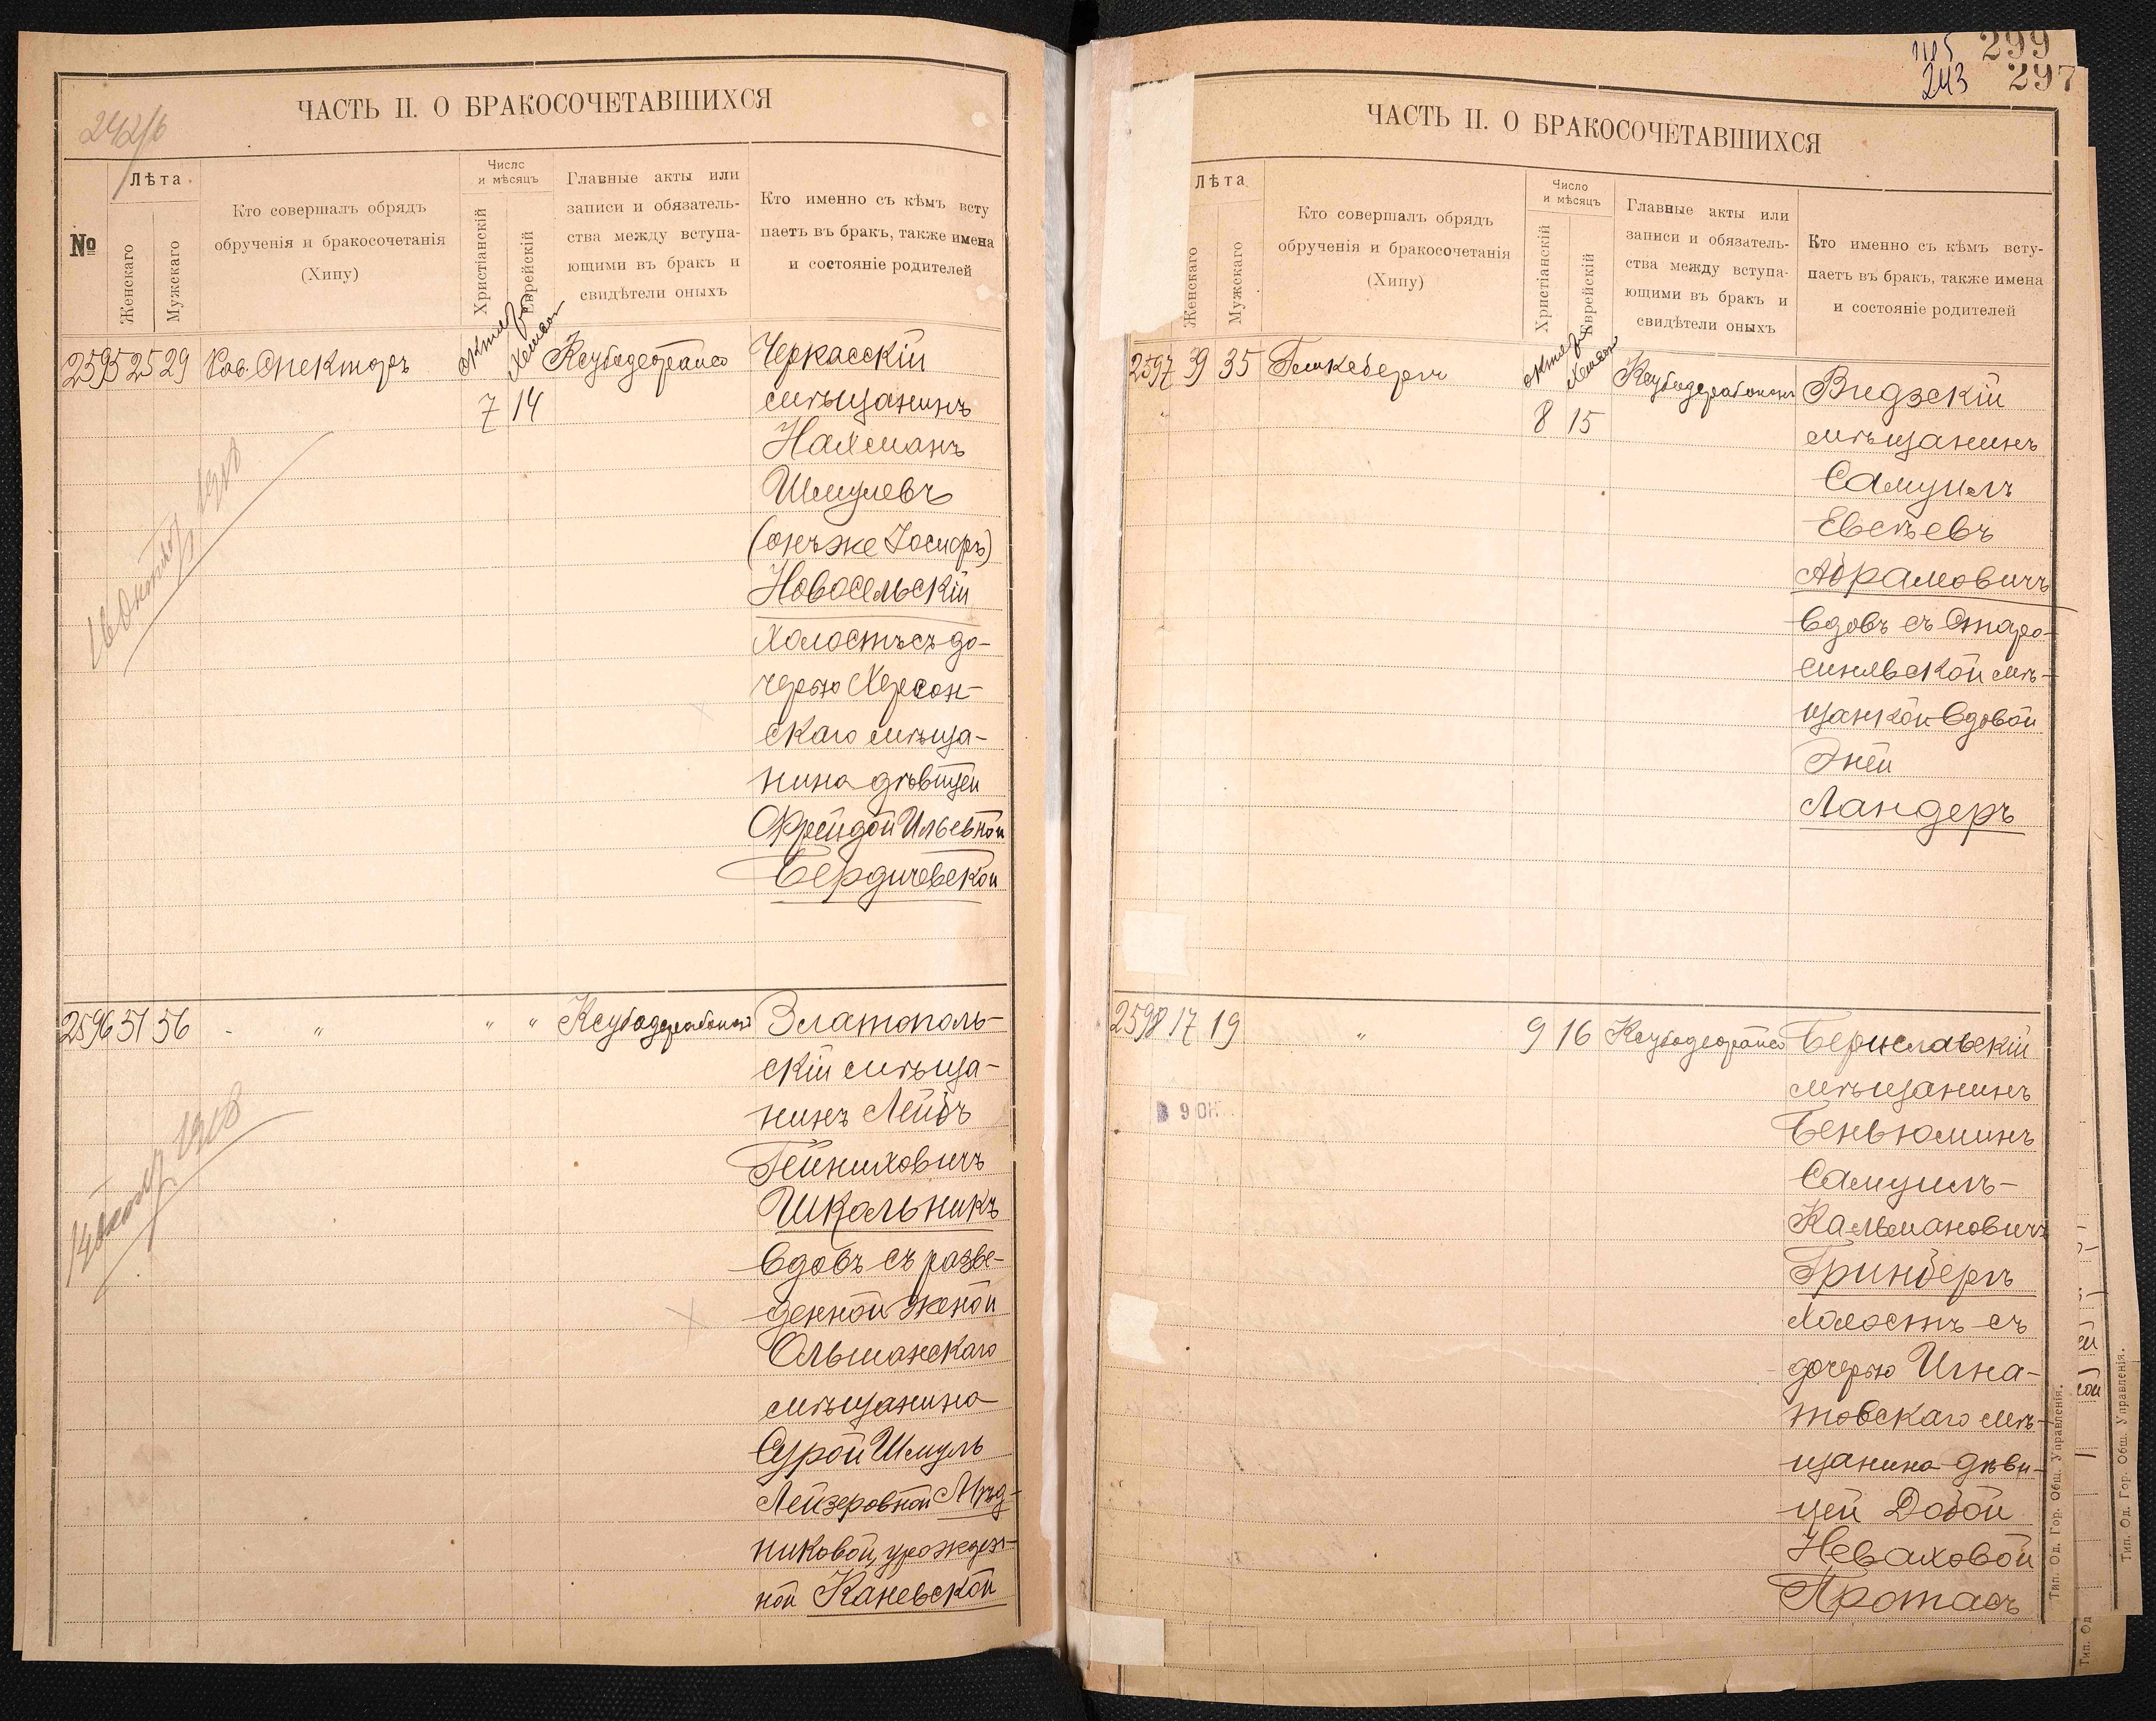 242/б
ЧАСТЬ II. О БРАКОСОЧЕТАВШИХСЯ
№
Лѣта
Женскаго
Мужескаго
Кто совершалъ обрядъ
обрученія и бракосочетанія
(Хипу)
Число
и мѣсяцъ
Христіанскій
Еврейскій
Главные акты или
записи и обязатель-
ства между вступа-
ющими въ бракъ и
свидѣтели оныхъ
Кто именно съ кѣмъ всту
паетъ въ бракъ, также имена
и состояніе родителей
2595 25 29
Рав. Спекторъ
октября
Хешвон
7 14
Черкасскій
мѣщанинъ
Нахманъ
Шмулевъ
(онъ же Іосифъ)
Новосельскій
холостъ съ до-
черью Херсон-
скаго мѣща-
нина дѣвицей
Фрейдой Ильевной
Бердичевской
16 Октября 1908
2596 51 56
" " "
Златополь-
скій мѣща-
нинъ Лейбъ
Гейниховичъ
Школьникъ
вдовъ съ разве-
денной женой
Ольшанскаго
мѣщанина
Сурой Шмуль
Лейзеровной Мѣд-
никовой, урожден-
ной Каневской
1908
299
243 297
ЧАСТЬ II. О БРАКОСОЧЕТАВШИХСЯ
Лѣта
Женскаго
Мужескаго
Кто совершалъ обрядъ
обрученія и бракосочетанія
(Хипу)
Число
и мѣсяцъ
Христіанскій
Еврейскій
Главные акты или
записи и обязатель-
ства между вступа-
ющими въ бракъ и
свидѣтели оныхъ
Кто именно съ кѣмъ всту-
паетъ въ бракъ, также имена
и состояніе родителей
2597 39 35
октября
Хешвон
8 15
Видзскій
мѣщанинъ
Самуилъ
Евсѣевъ
Абрамовичъ
вдовъ съ Старо-
синявской мѣ-
щанкой вдовой
Энёй
Ландеръ
2598 17 19
"
9 16
Бериславскій
мѣщанинъ
Беньюминъ
Самуилъ-
Кальмановичъ
Гринбергъ
холостъ съ
дочерью Игна-
товскаго мѣ-
щанина дѣви-
цей Добой
Неваховой
Протасъ
9 ОК
Тип. Од. Гор. Общ. Управленія.
Тип. Од. Гор. Общ. Управленія.
Тип. Од